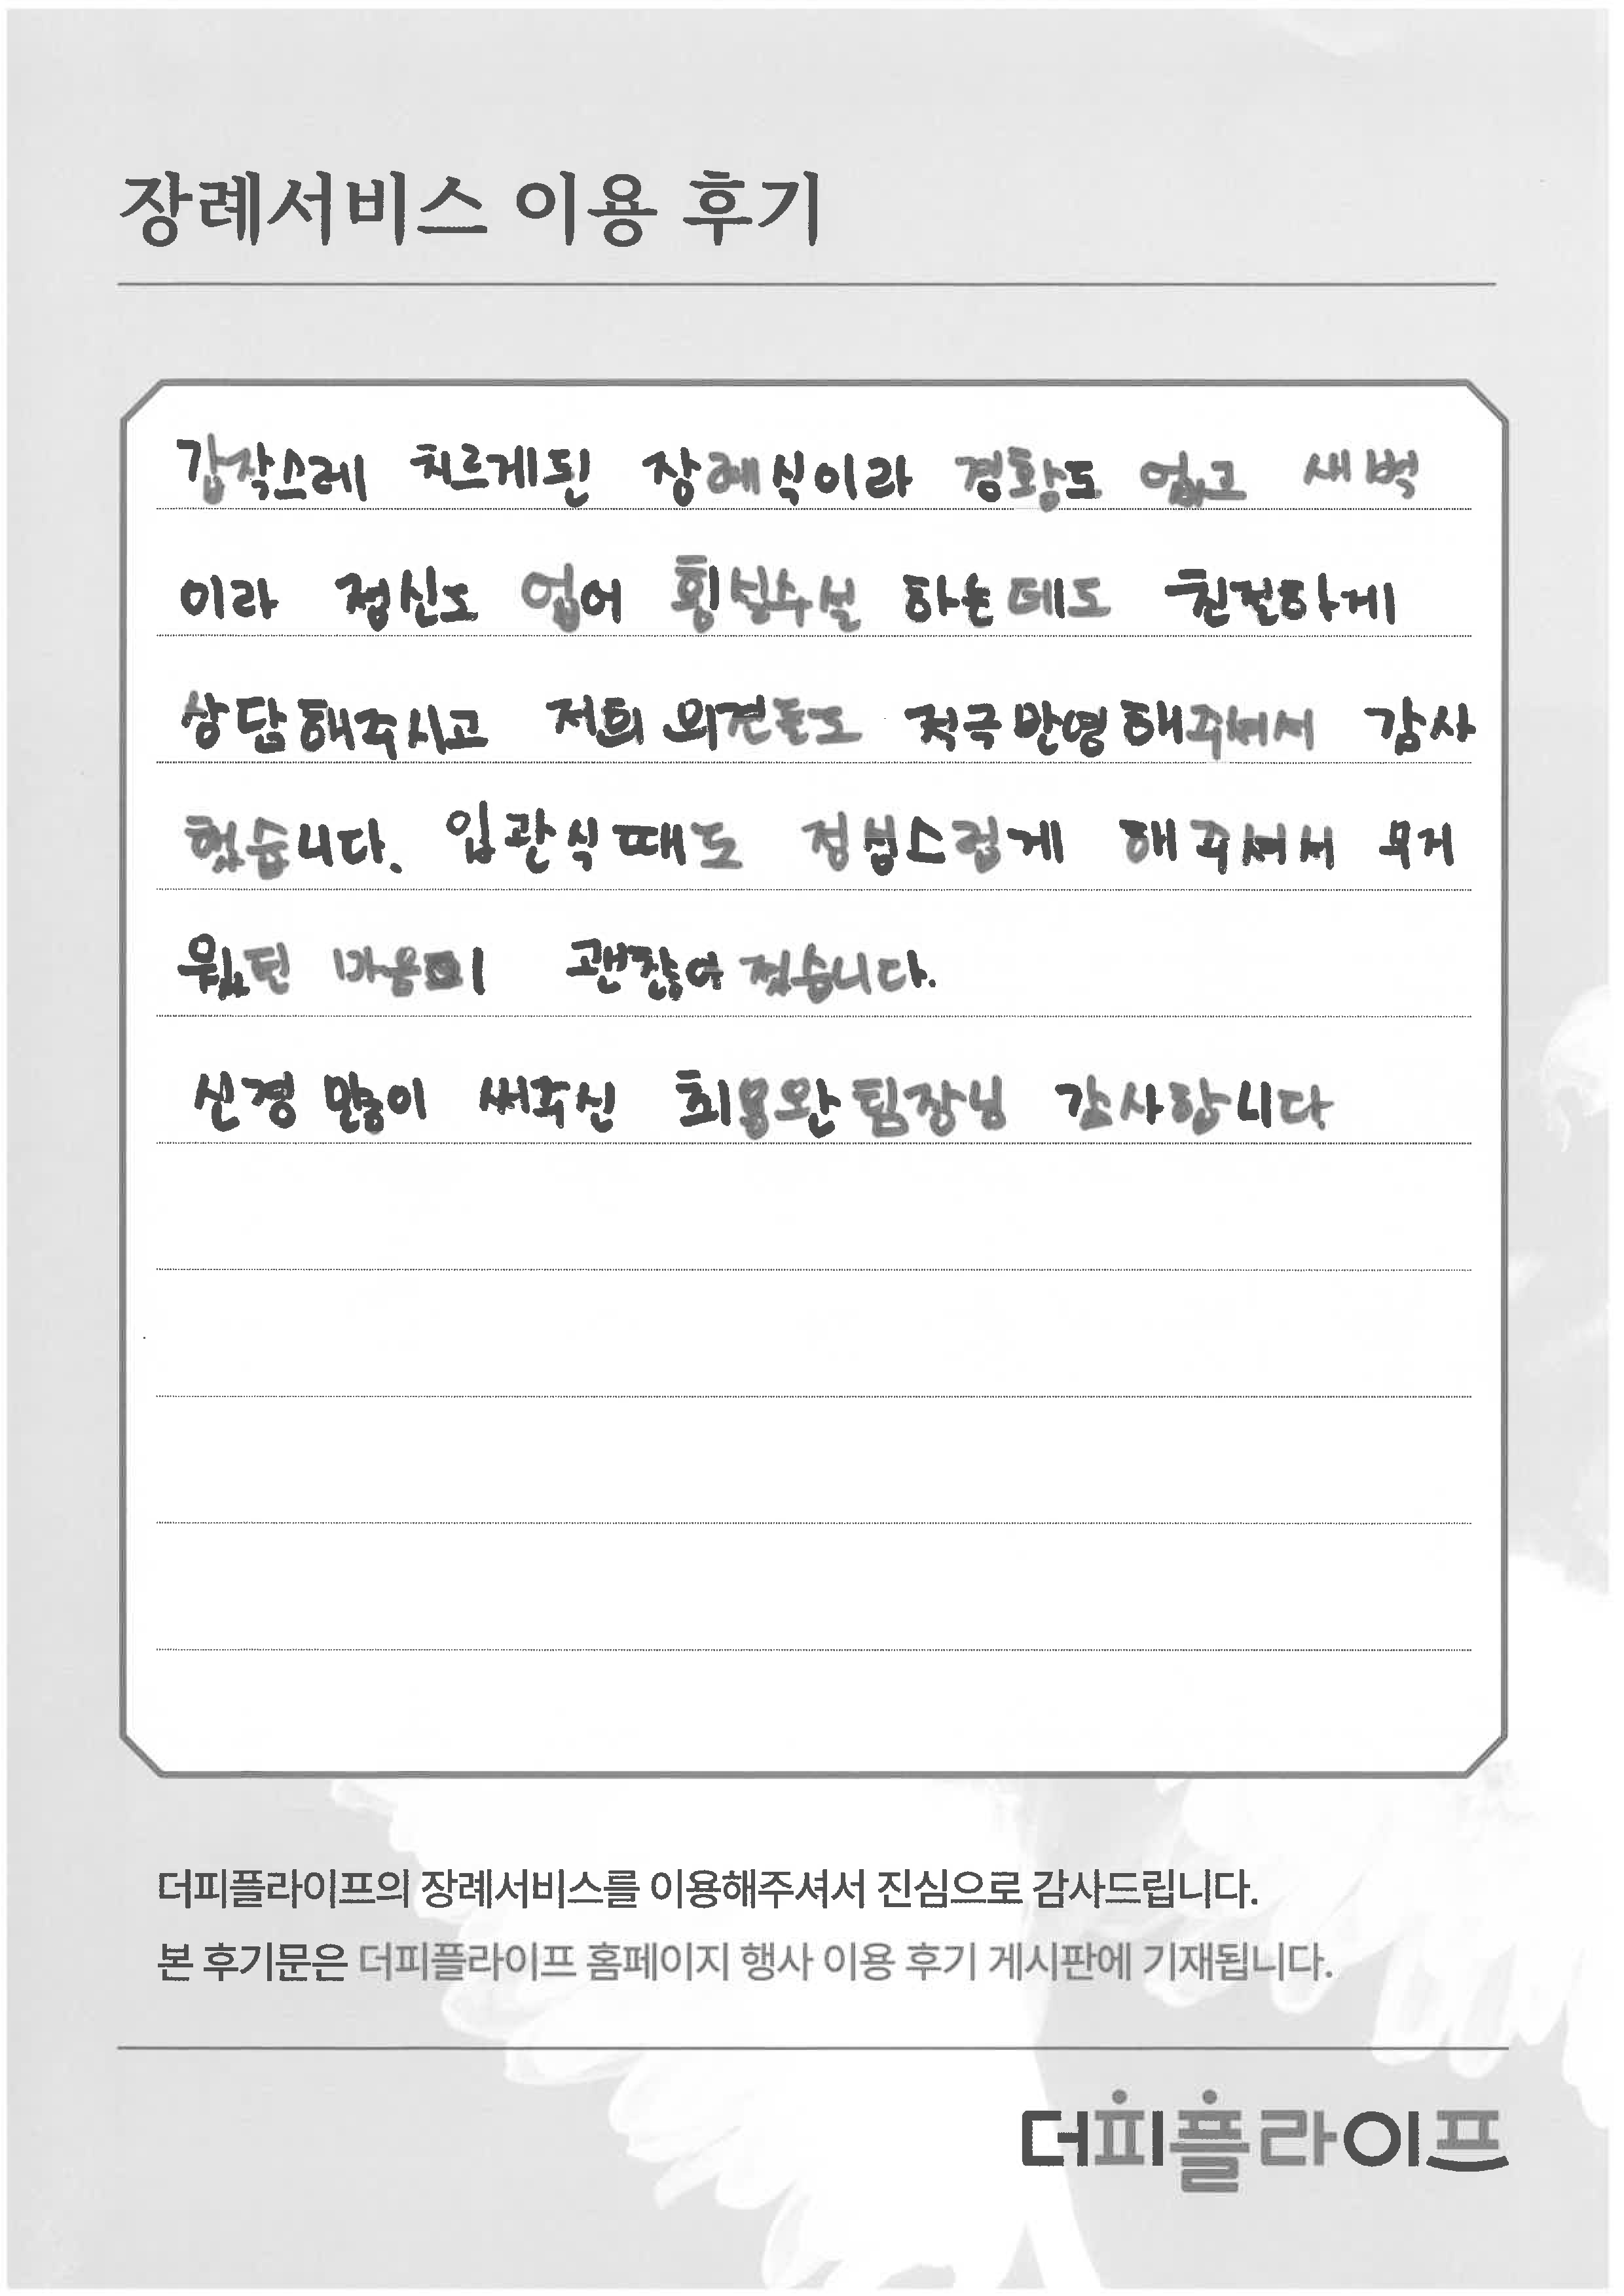 장례서비스 이용 후기
갑작스레 치르게된 장례식이라 경황도 없고 새벽
이라 정신도 없어 횡설수설 하는데도 친절하게
상담해주시고 저희 의견들도 적극반영해주셔서 감사
했습니다. 입관식때도 정성스럽게 해주셔서 무거
웠던 마음이 괜찮아졌습니다.
신경 많이 써주신 최용완팀장님 감사합니다
더피플라이프의 장례서비스를 이용해주셔서 진심으로 감사드립니다.
본 후기문은 더피플라이프 홈페이지 행사 이용 후기 게시판에 기재됩니다.
더피플라이프